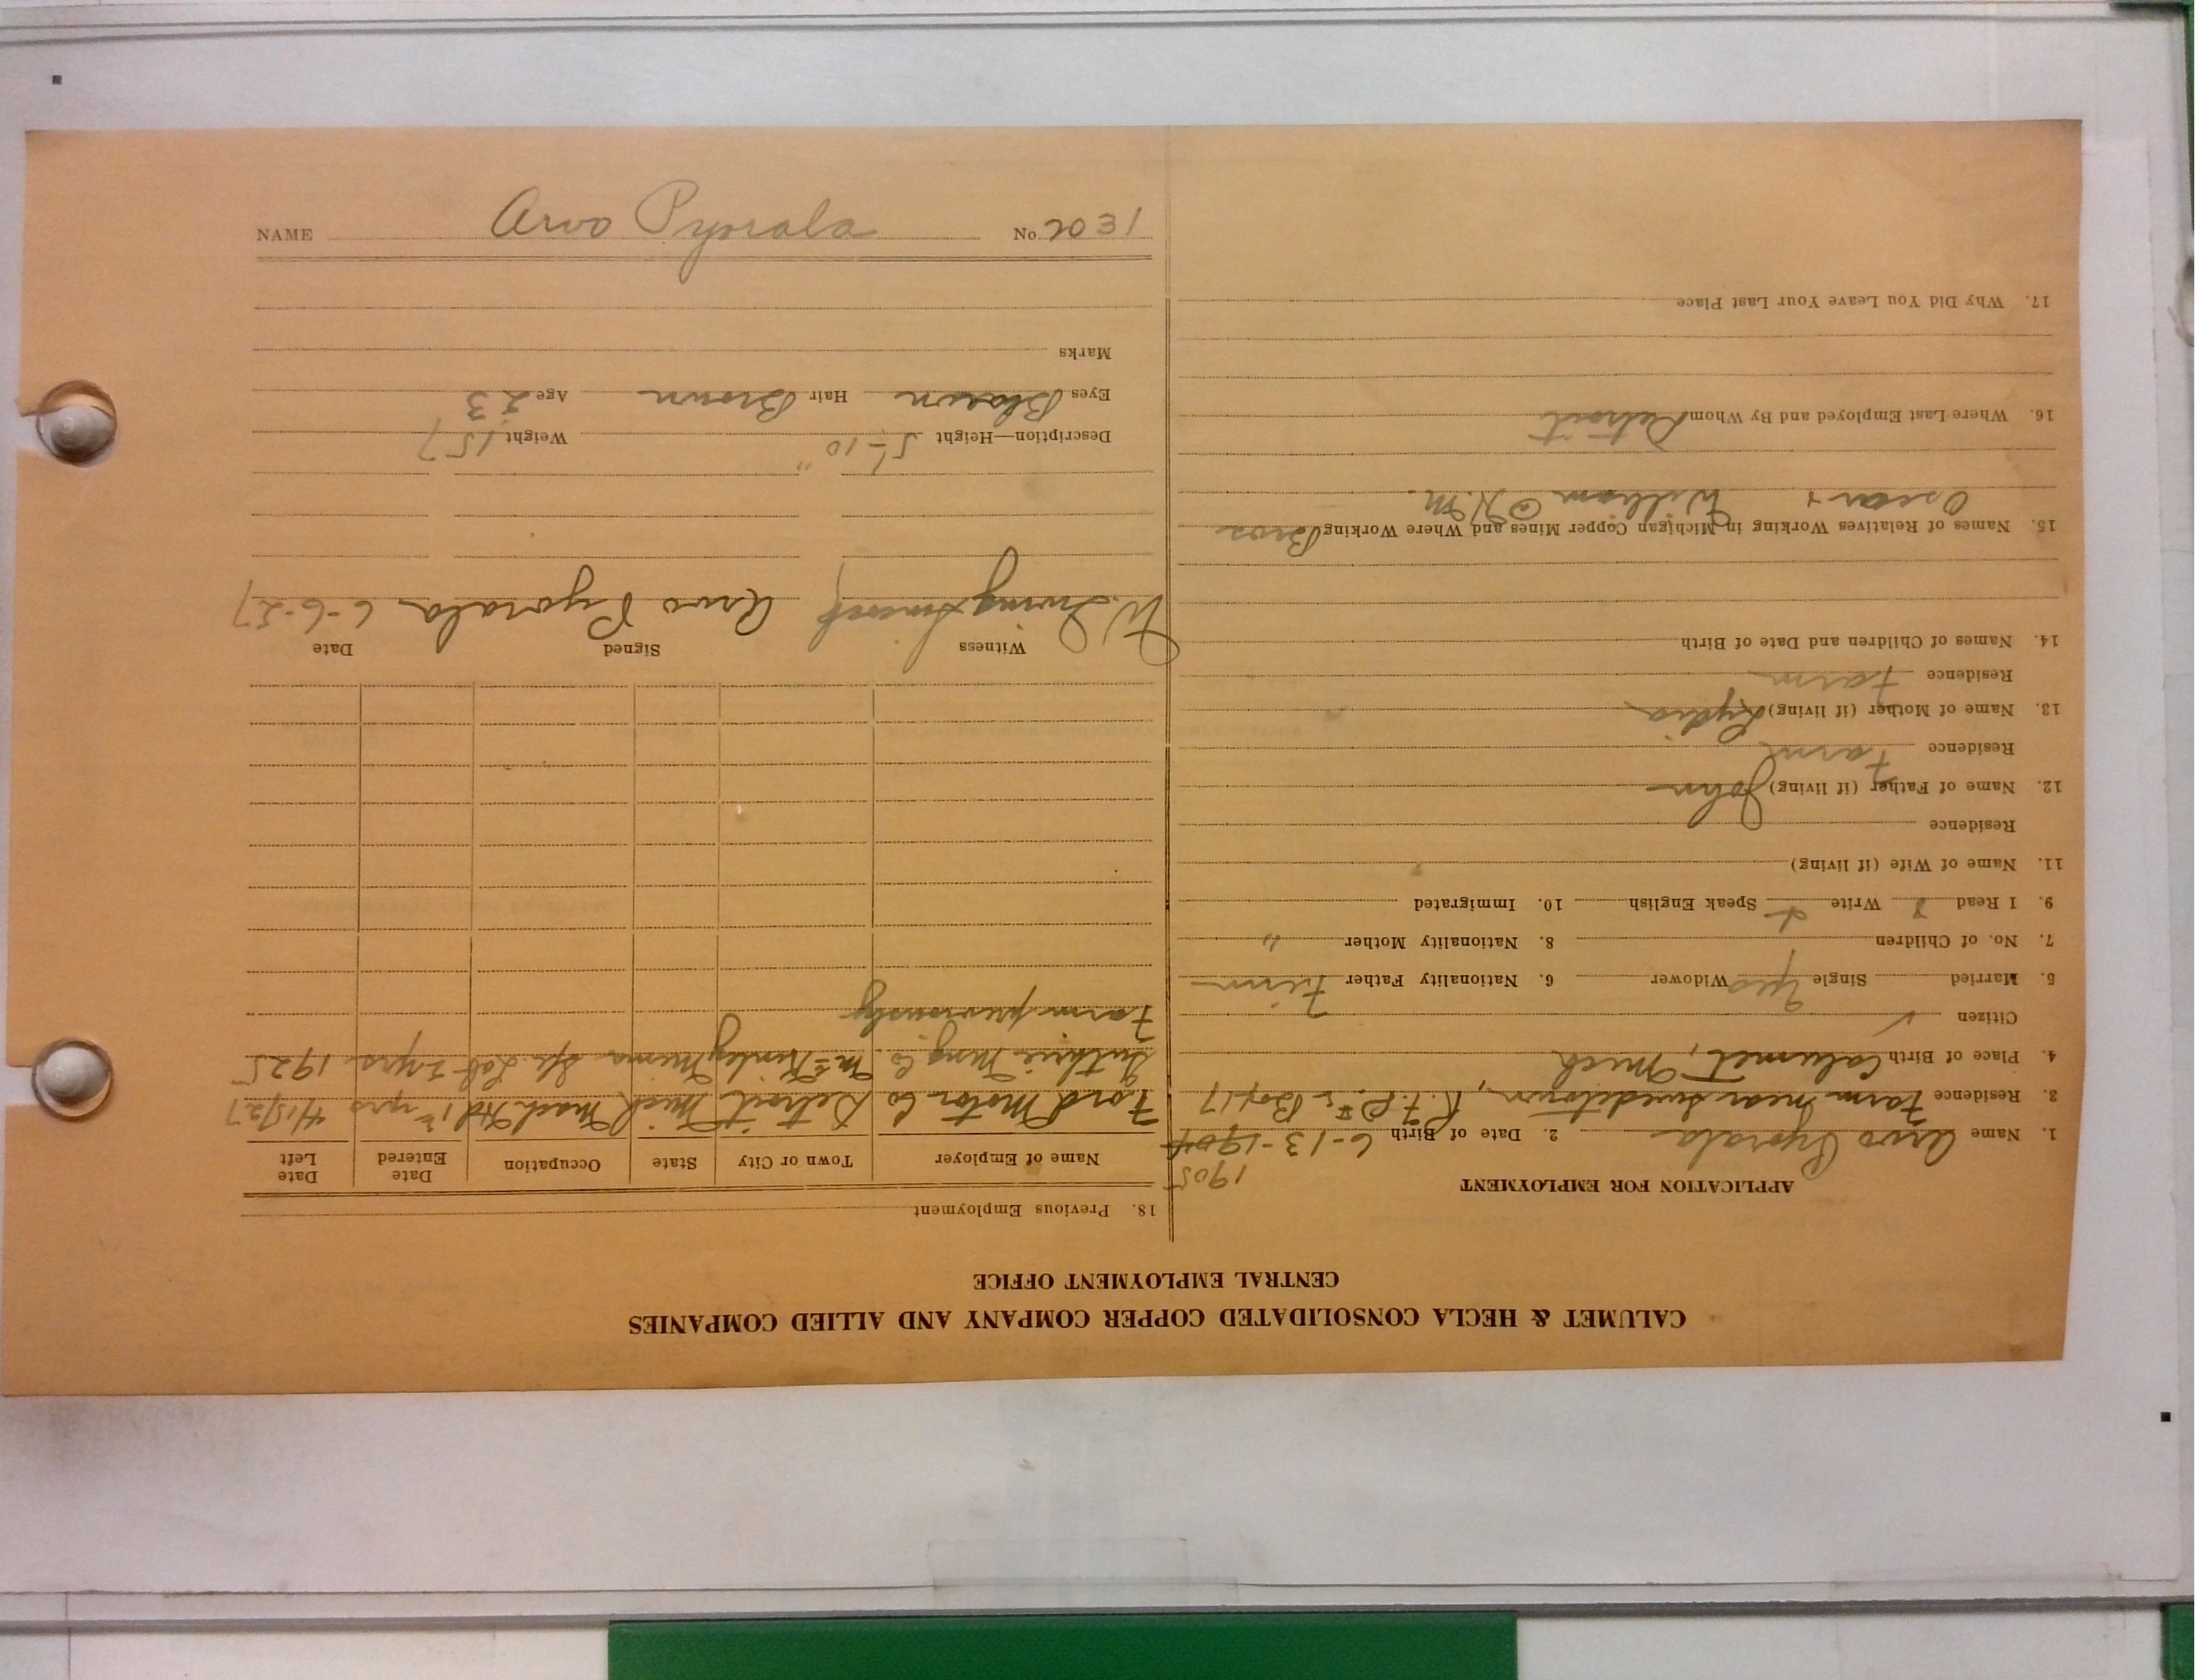 CALUMET & HECLA CONSOLIDATED COPPER COMPANY AND ALLIED COMPANIES
CENTRAL EMPLOYMENT OFFICE
APPLICATION FOR EMPLOYMENT
1905
1. Name Arvo Pyorala 2. Date of Birth 6-13-1904
3. Residence Farm near Swedetown, R.F.D. #1 Box 17
4. Place of Birth Calumet, Mich
Citizen ✓
5. Married Single Yes Widower 6. Nationality Father Finn
7. No. of Children 8. Nationality Mother "
9. I Read Write Speak English 10. Immigrated
11. Name of Wife (if living)
Residence
12. Name of Father (if living) John
Residence Farm
13. Name of Mother (if living) Lydia
Residence Farm
14. Names of Children and Date of Birth
15. Names of Relatives Working in Michigan Copper Mines and Where Working Bros
Oscar + William @ N.M.
16. Where Last Employed and By Whom Detroit
17. Why Did You Leave Your Last Place
18. Previous Employment
Name of Employer Town or City State Occupation Date Entered Date Left
Ford Motor Co Detroit Mich Mach Hd 1½ yrs 4/15/27
Guthrie Mng. Co. McKinley Minna Lab 2 yrs. 1925
Farm previously
Witness Signed Date
W. Irving Arvo Pyorala 6-6-27
Description—Height 5'-10" Weight 157
Eyes Brown Hair Brown Age 23
Marks
NAME Arvo Pyorala No. 2031